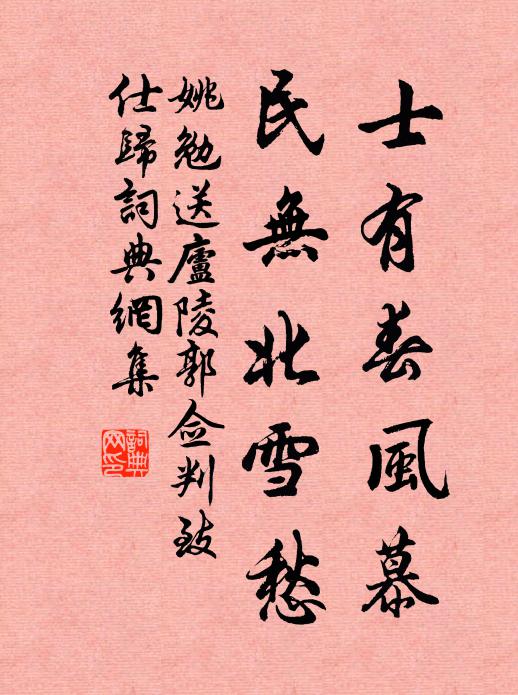 士有春風慕
民無北雪愁
姚勉送廬陵郭佥判致
仕歸詞典網集
詞典
网印